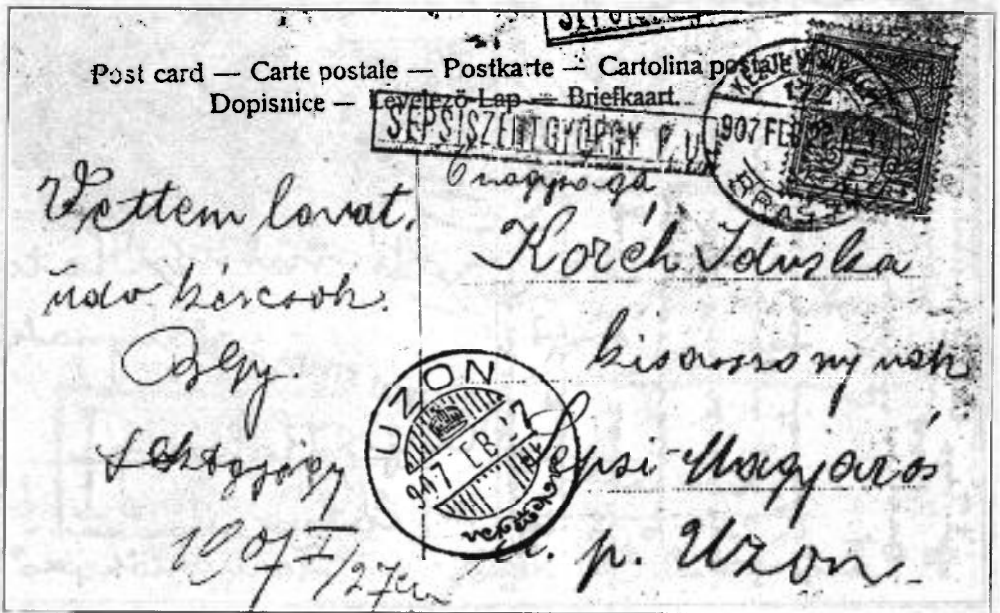 Post card — Carte postale — Postkarte — Cartolina postale
Dopisnice — Levelező-Lap — Briefkaart.
SEPSISZENTGYÖRGY P. U.
907 FEB
BRA
Vettem lovat.
kézcsók.
Nagysága
Korch Iduska
kisasszonynak
Sepsi-Magyarós
u. p. Uzon.
UZON
907 FEB 27
1907 II/27én